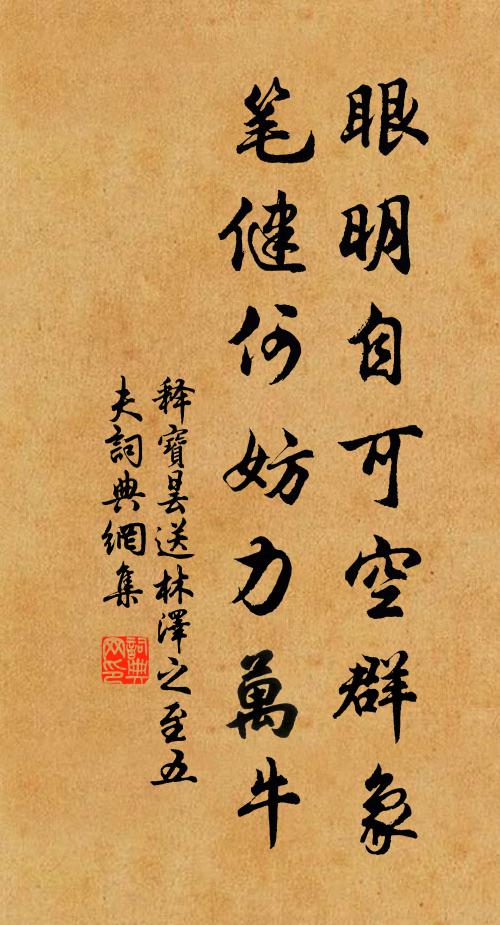 眼明自可空群象
笔健何妨力萬牛
释寶曇送林澤之至五
夫詞典網集
詞典網印